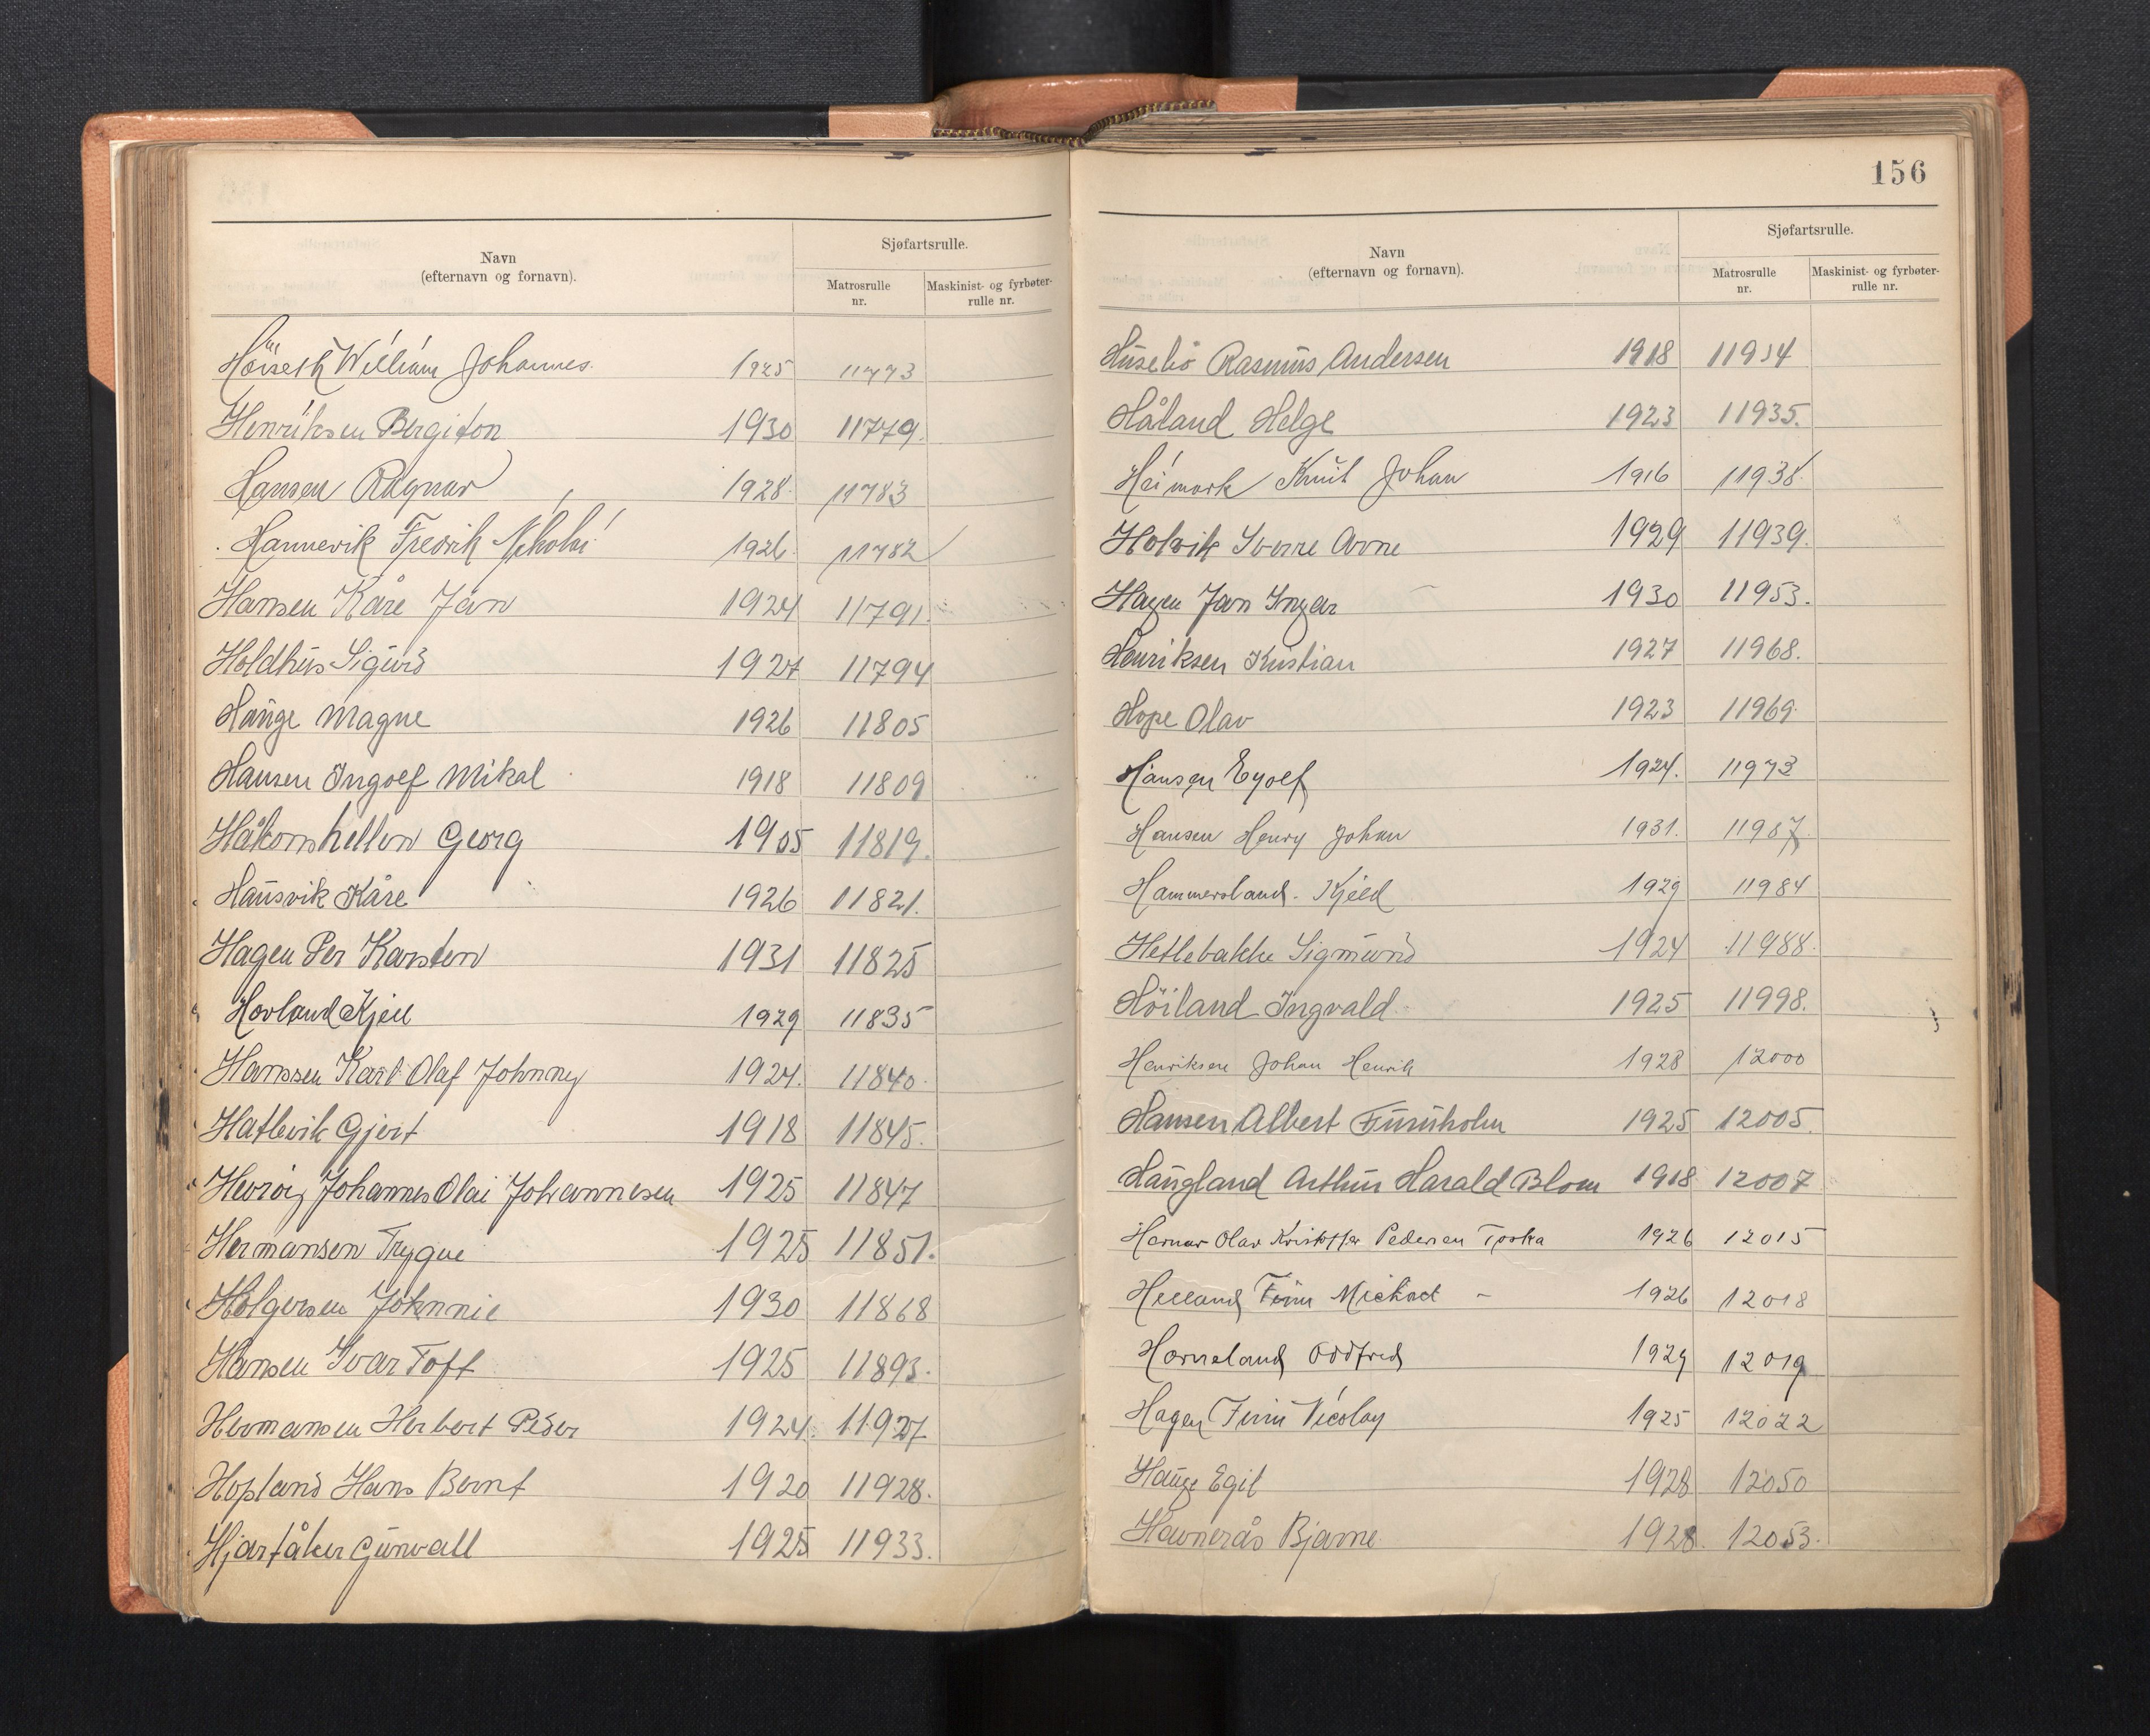 Navn
(efternavn og fornavn).
Sjøfartsrulle.
Matrosrulle
nr.
Maskinist- og fyrbøter-
rulle nr.
Høiseth William Johannes. 1925 11773
Henriksen Bergiton 1930 11779.
Hansen Ragnar 1928. 11783
Hannevik Fredrik Nikolai 1926. 11782
Hansen Kåre Jan 1924 11791.
Holdhus Sigurd 1927 11794
Hauge Magne 1926 11805
Hansen Ingolf Mikal 1918 11809
Håkonshellen Georg 1905 11819.
Hausvik Kåre 1926 11821.
Hagen Per Karsten 1931 11825
Hovland Kjell 1929 11835
Hanssen Karl Olaf Johnny 1924. 11840.
Hatlevik Gjert 1918 11845.
Johannes Olai Johannesen 1925 11847
Hermansen Trygve 1925 11851.
Holgersen Johnnie 1930 11868
Hansen Ivar Toft 1925 11893.
Hermansen Herbert Peder 1924. 11927
Hopland Hans Bernt 1920 11928.
Hjartåker Gunvall 1925 11933.
156
Navn
(efternavn og fornavn).
Sjøfartsrulle.
Matrosrulle
nr.
Maskinist- og fyrbøter-
rulle nr.
Husebø Rasmus Andersen 1918 11934
Håland Helge 1923 11935.
Heimark Knut Johan 1916 11938.
Holvik Sverre Arne 1929 11939.
Hagen Jan Ingar 1930 11953.
Henriksen Kristian 1927 11968.
Hope Olav 1923 11969.
Hansen Eyolf 1924. 11973
Hansen Henry Johan 1931.
Hammersland. Kjell 1929 11984
Hetlebakke Sigmund 1924 11988.
Höiland Ingvald 1925 11998.
Henriksen Johan Henrik 1928 12000
Hansen Albert Furuholm 1925 12005.
Haugland Arthur Harald Blom 1918 12007
Hernar Olav Kristoffer Pedersen Toska 1926 12015
Helland Finn Michael 1926 12018
Horneland Oddfred 1929 12019
Hagen Finn Nicolay 1925 12022
Hauge Egil 1928 12050
Havnerås Bjarne 1928. 12053.